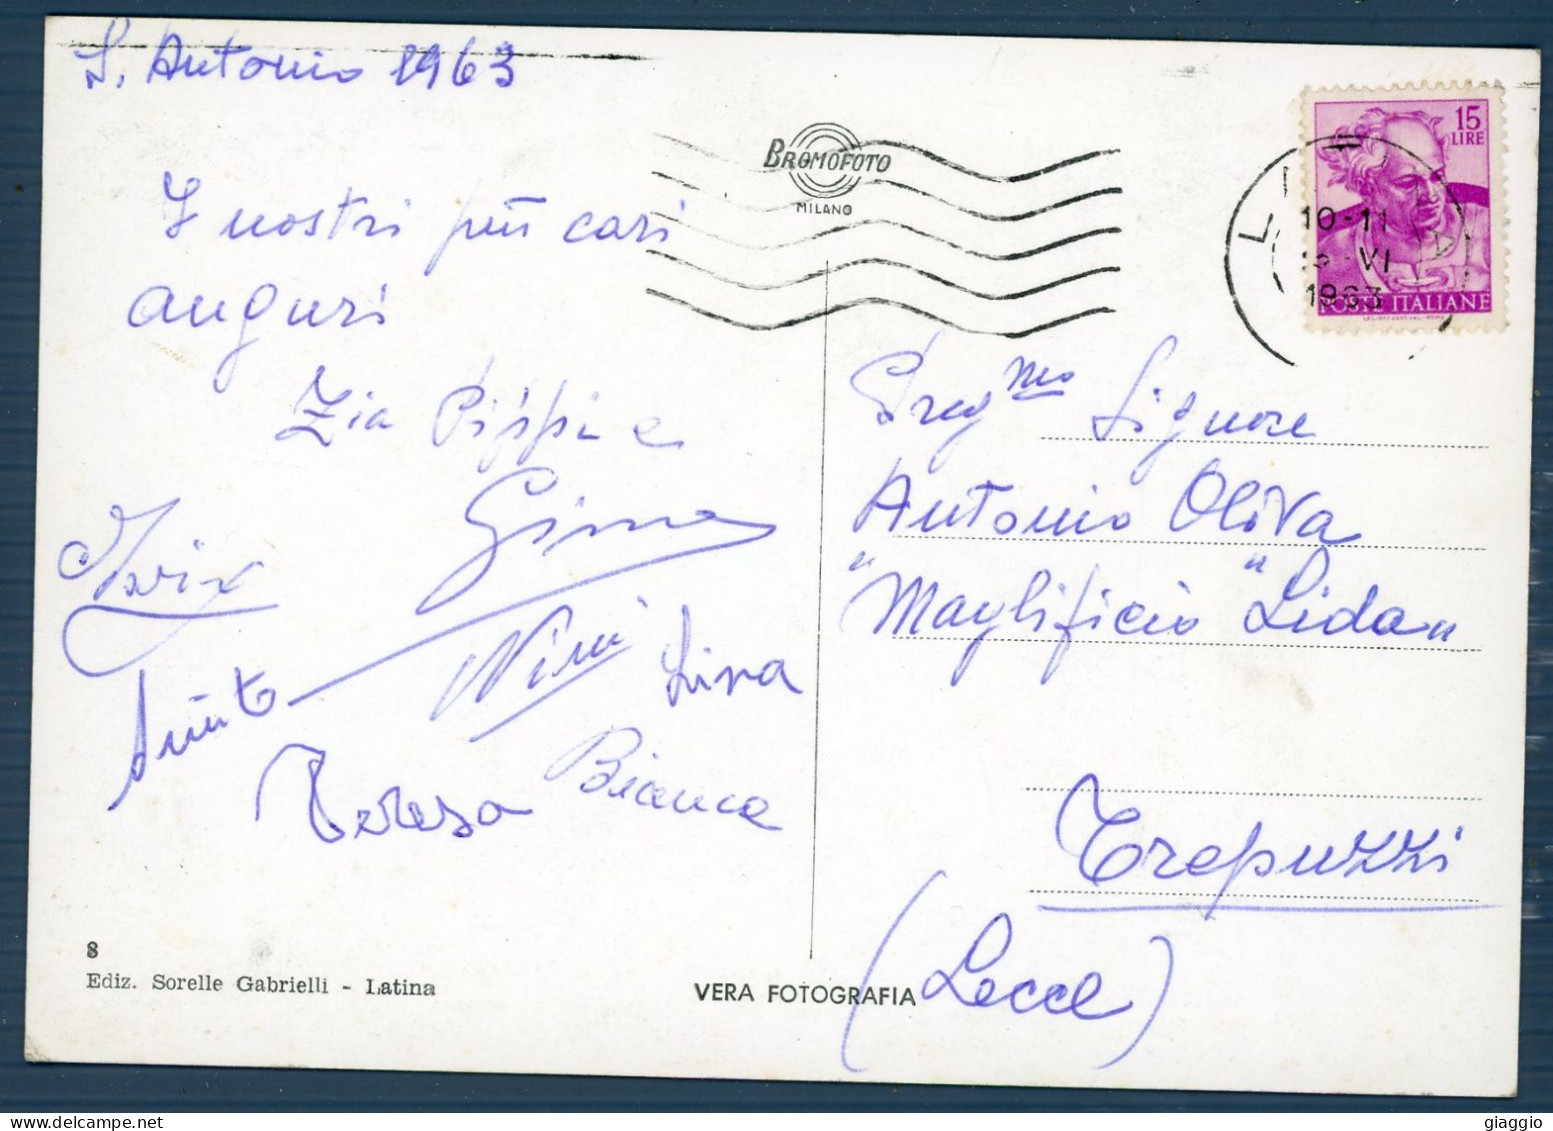 S. Antonio 1963
I nostri più cari
auguri
Zia Pippi e
Gina
Nini
Lina
Bianca
Teresa
8
Ediz. Sorelle Gabrielli - Latina
VERA FOTOGRAFIA
BROMOFOTO
MILANO
15
LIRE
10-11
VI
1963
POSTE ITALIANE
Preg.mo Signore
Antonio Oliva
"Maglificio "Lida"
Trepuzzi
(Lecce)
giaggio